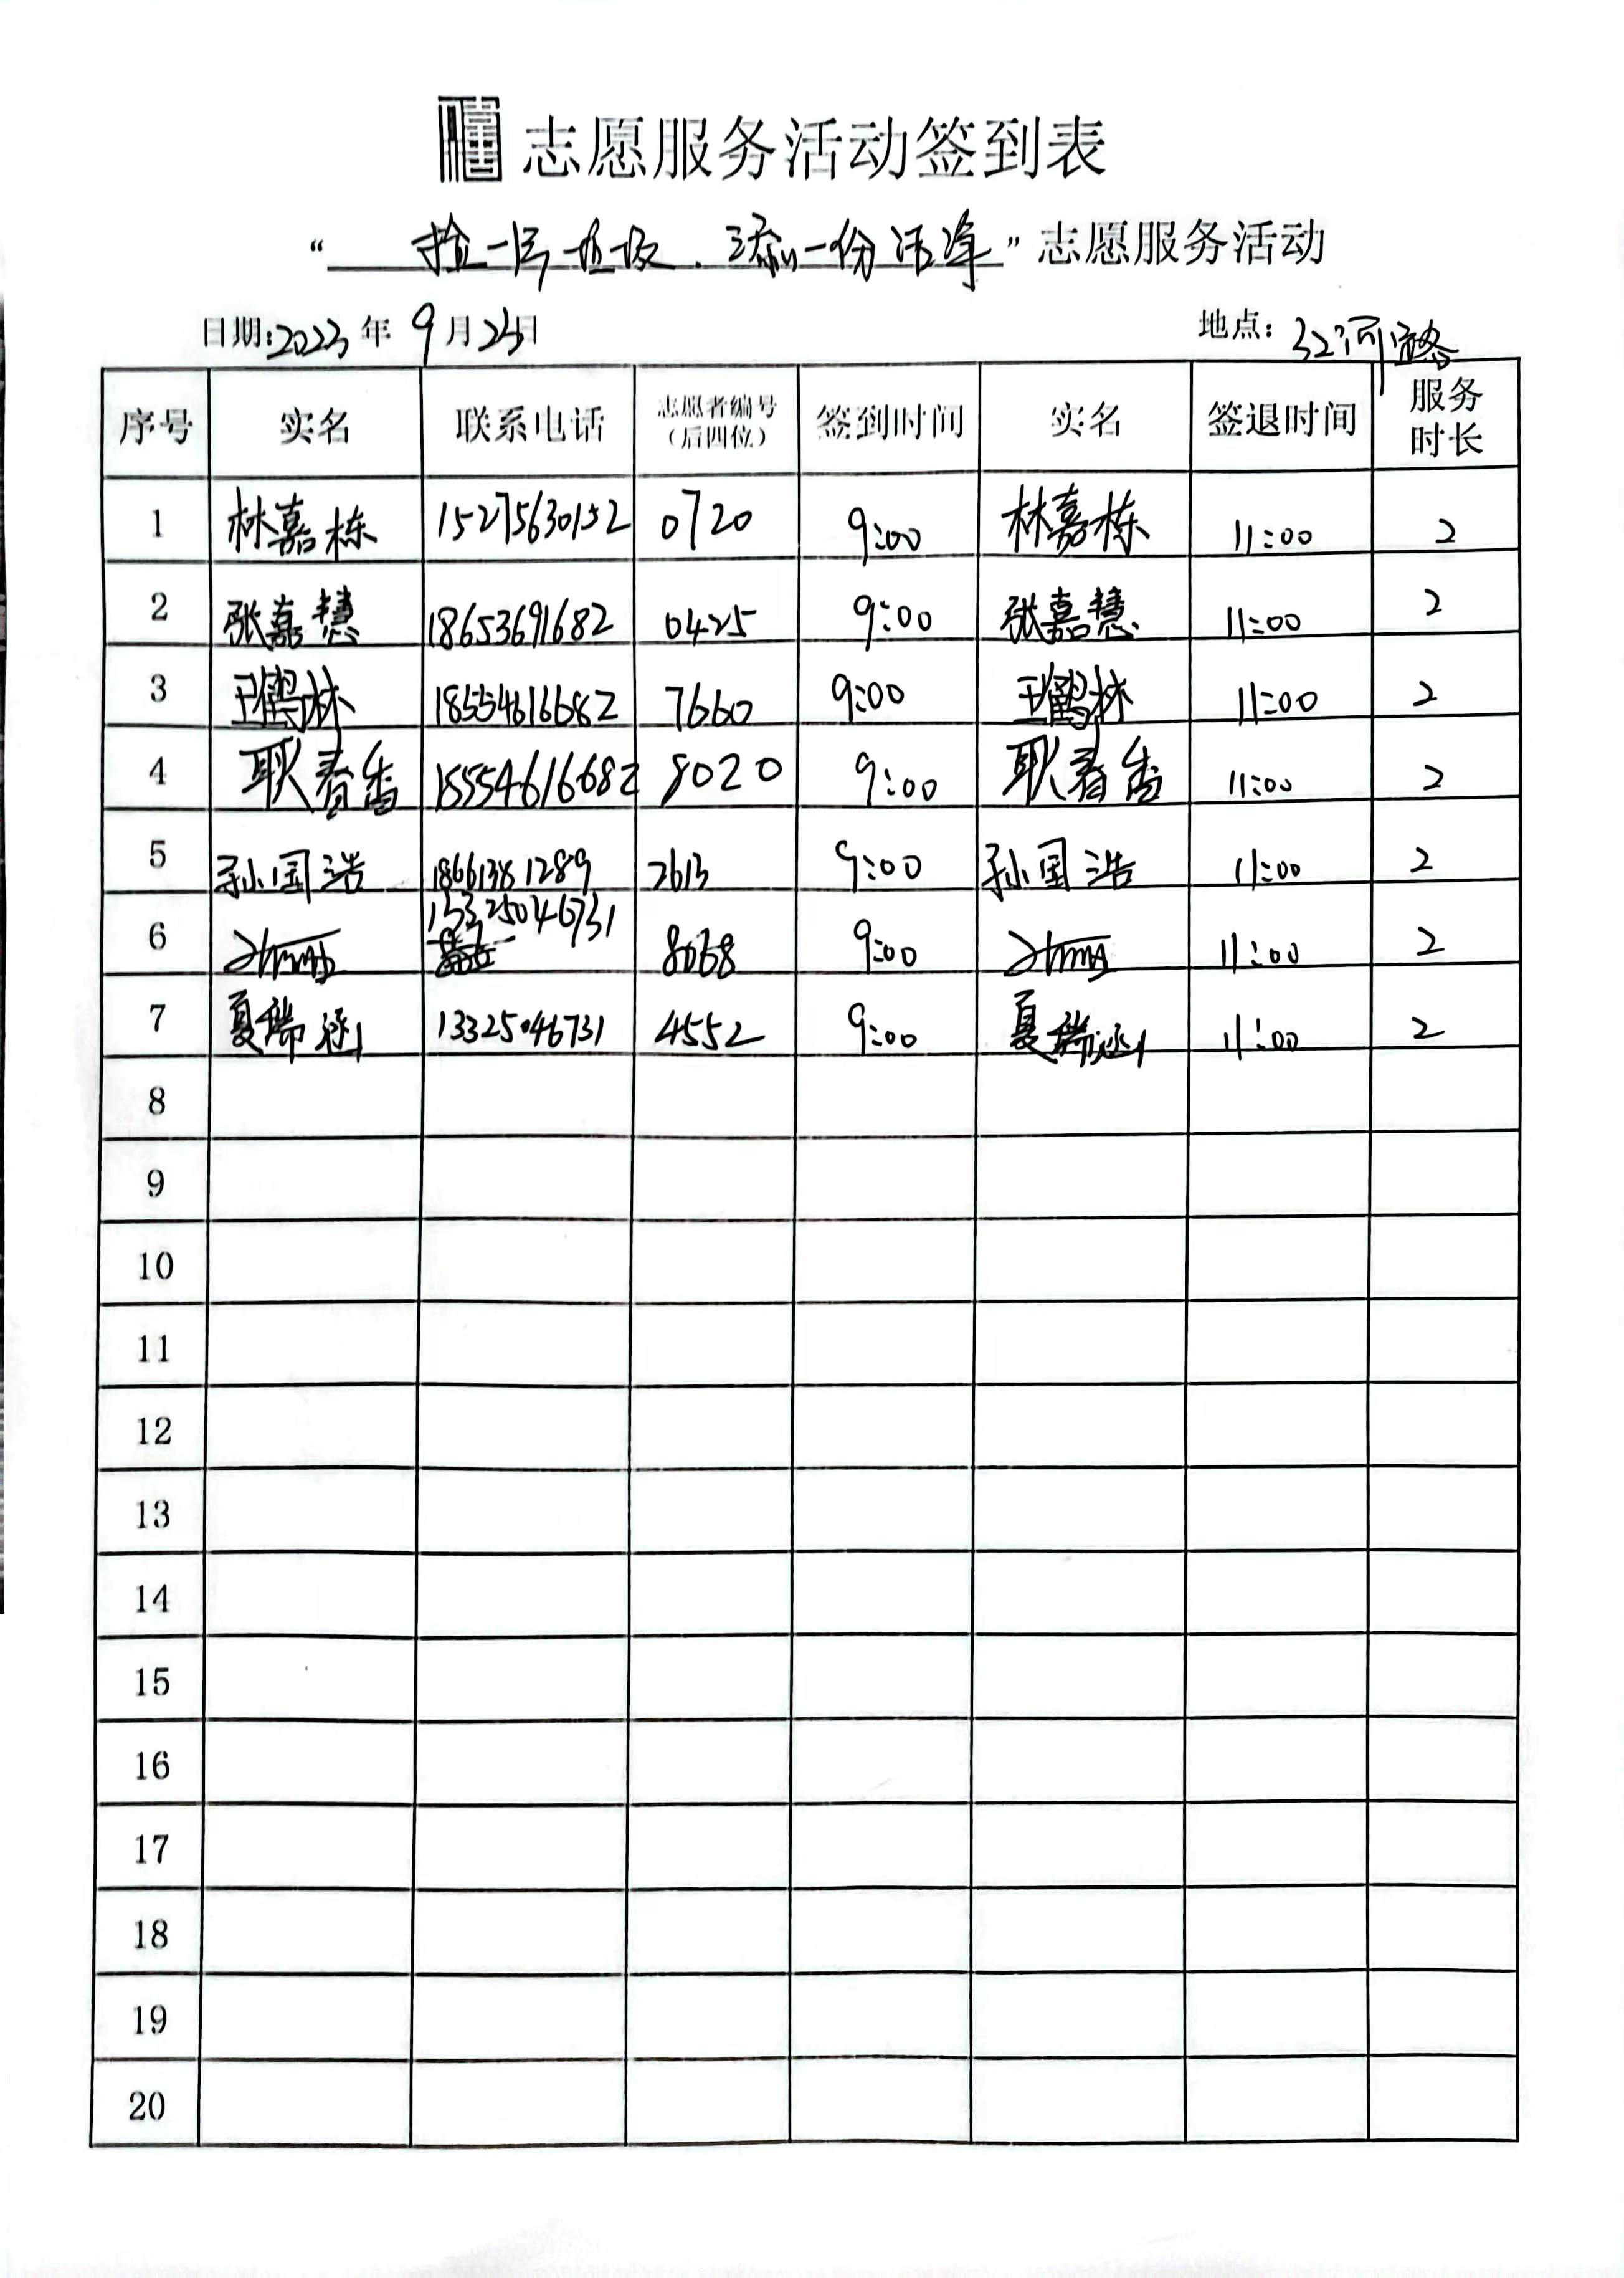 志愿服务活动签到表
“捡一片垃圾.添一份洁净”志愿服务活动
日期:2023年9月23日 地点:红河路
序号 实名 联系电话 志愿者编号（后四位） 签到时间 实名 签退时间 服务时长
1 林嘉栋 15275630152 0720 9:00 林嘉栋 11:00 2
2 张嘉慧 18653691682 0425 9:00 张嘉慧 11:00 2
3 王鹤林 18554616682 7660 9:00 王鹤林 11:00 2
4 耿春香 15554616682 8020 9:00 耿春香 11:00 2
5 孙国浩 18661381289 2613 9:00 孙国浩 11:00 2
6 13325046731 8068 9:00 11:00 2
7 夏瑞涵 13325046731 4552 9:00 夏瑞涵 11:00 2
8
9
10
11
12
13
14
15
16
17
18
19
20